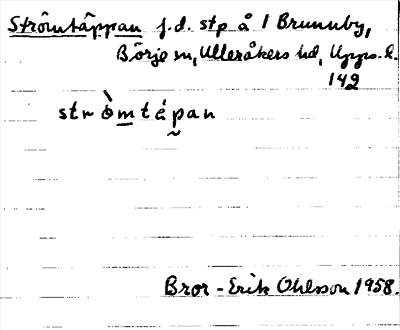 Strömtäppan f.d. stp å 1 Brunnby,
Börje sn, Ulleråkers hd, Upps. l.
142
stròmtápan
Bror-Erik Ohlsson 1958.